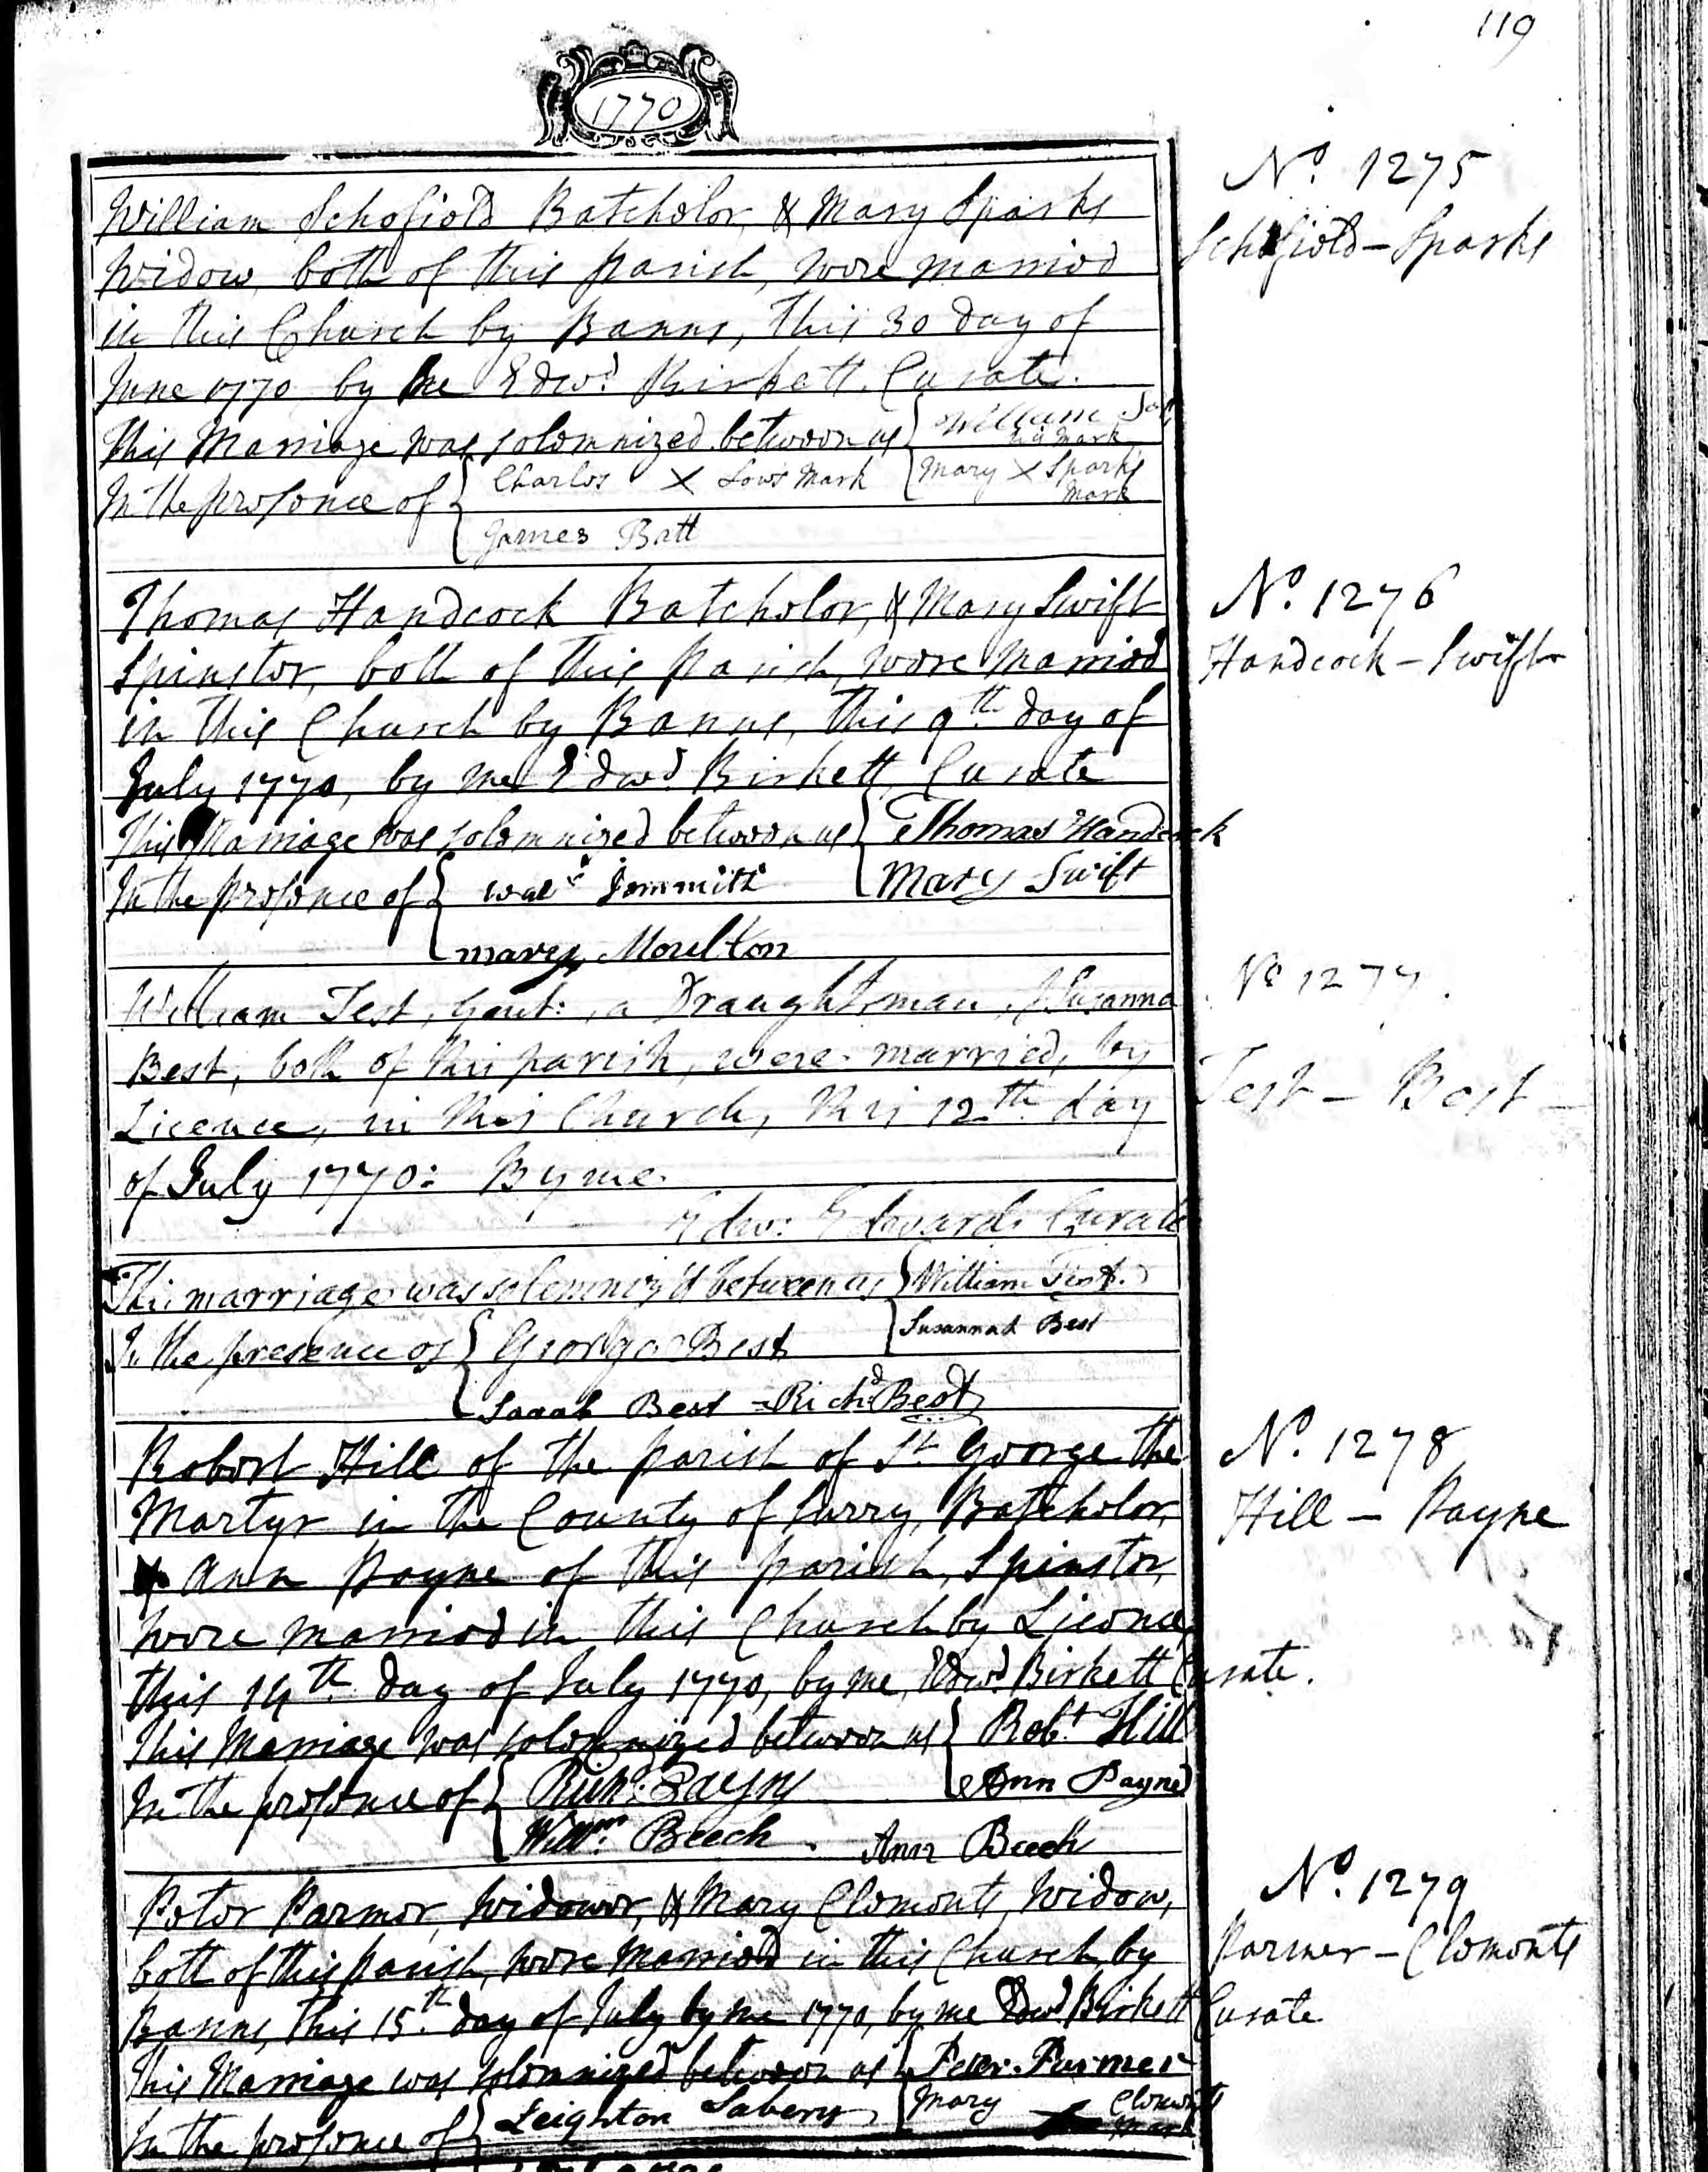 119
1770
William Schofield Batchelor, & Mary Sparks
Widow, both of this parish, were married
in this Church by Banns, this 30 day of
June 1770 by me Edwd. Birkett. Curate.
This Marriage was solemnized between us { William
his mark
In the presence of { Charles X Lows Mark { Mary X Sparks
Mark
James Batt
No. 1275
Schofield - Sparks
Thomas Handcock Batchelor, & Mary Swift
Spinster, both of this parish, were married
in this Church by Banns, this 9th. day of
July 1770, by me Edwd. Birkett, Curate
This Marriage was solemnized between us { Thomas Handcock
In the presence of { Jemmitt { Mary Swift
mary Moulton
No. 1276
Handcock - Swift
William Test, Gent:, a Draughtsman, & Susanna
Best, both of this parish, were married, by
Licence, in this Church, this 12th day
of July 1770: By me.
Edw: Edwards Curate
This marriage was solemniz'd between us { William Test.
In the presence of { George Best { Susannah Best
Sarah Best - Richd. Best
No 1277.
Test - Best -
Robert Hill of the parish of St. George the
Martyr in the County of Surry, Batchelor,
& Ann Payne of this parish, Spinster,
were married in this Church by Licence
this 14th. day of July 1770, by me, Edwd. Birkett Curate.
This Marriage was solemnized between us { Robt. Hill
In the presence of { Richd. Payne { Ann Payne
Willm. Beech. Ann Beech
No. 1278
Hill - Payne
Peter Parmer, Widower, & Mary Clements, Widow,
both of this parish, were married in this Church, by
Banns, this 15th. day of July by me 1770, by me Edwd. Birkett Curate
This Marriage was solemnized between us { Peter Parmer
In the presence of { Leighton Sabery { Mary X Clements
Mark
No. 1279
Parmer - Clements